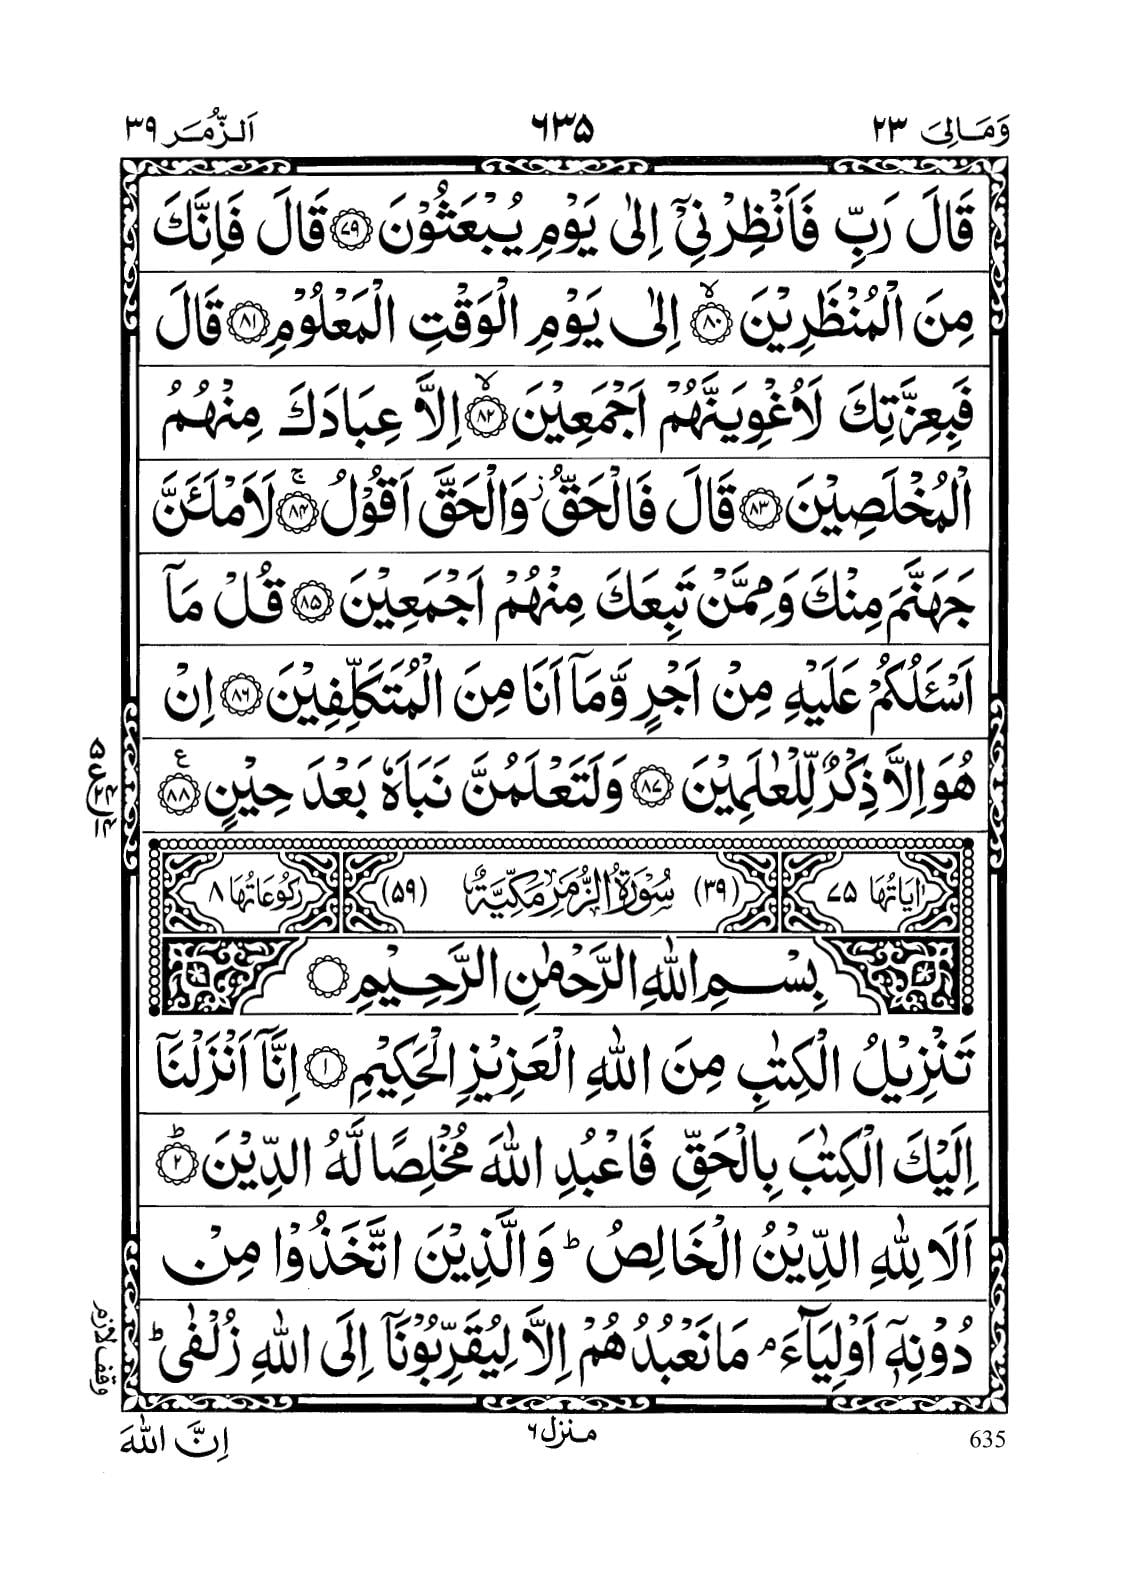 وَمَالِیَ ٢٣ ٦٣٥ اَلزُّمَر ٣٩
قَالَ رَبِّ فَاَنْظِرْنِیْۤ اِلٰى یَوْمِ یُبْعَثُوْنَ ﴿۷۹﴾ قَالَ فَاِنَّكَ
مِنَ الْمُنْظَرِیْنَ ﴿۸۰﴾ۙ اِلٰى یَوْمِ الْوَقْتِ الْمَعْلُوْمِ ﴿۸۱﴾ قَالَ
فَبِعِزَّتِكَ لَاُغْوِیَنَّهُمْ اَجْمَعِیْنَ ﴿۸۲﴾ۙ اِلَّا عِبَادَكَ مِنْهُمُ
الْمُخْلَصِیْنَ ﴿۸۳﴾ قَالَ فَالْحَقُّ ؗ وَالْحَقَّ اَقُوْلُ ﴿۸۴﴾ۚ لَاَمْلَـَٔنَّ
جَهَنَّمَ مِنْكَ وَمِمَّنْ تَبِعَكَ مِنْهُمْ اَجْمَعِیْنَ ﴿۸۵﴾ قُلْ مَاۤ
اَسْـَٔلُكُمْ عَلَیْهِ مِنْ اَجْرٍ وَّمَاۤ اَنَا مِنَ الْمُتَكَلِّفِیْنَ ﴿۸۶﴾ اِنْ
هُوَ اِلَّا ذِكْرٌ لِّلْعٰلَمِیْنَ ﴿۸۷﴾ وَلَتَعْلَمُنَّ نَبَاَهٗ بَعْدَ حِیْنٍ ﴿۸۸﴾ ع
اٰیَاتُهَا ۷۵ (۳۹) سُوْرَةُ الزُّمَرِ مَكِّیَّةٌ (۵۹) رُكُوْعَاتُهَا ۸
بِسْمِ اللّٰهِ الرَّحْمٰنِ الرَّحِیْمِ
تَنْزِیْلُ الْكِتٰبِ مِنَ اللّٰهِ الْعَزِیْزِ الْحَكِیْمِ ﴿۱﴾ اِنَّاۤ اَنْزَلْنَاۤ
اِلَیْكَ الْكِتٰبَ بِالْحَقِّ فَاعْبُدِ اللّٰهَ مُخْلِصًا لَّهُ الدِّیْنَ ﴿۲﴾ؕ
اَلَا لِلّٰهِ الدِّیْنُ الْخَالِصُ ؕ وَالَّذِیْنَ اتَّخَذُوْا مِنْ
دُوْنِهٖۤ اَوْلِیَآءَ ۘ مَا نَعْبُدُهُمْ اِلَّا لِیُقَرِّبُوْنَاۤ اِلَى اللّٰهِ زُلْفٰى ؕ
وقف لازم
635 منزل ٦ اِنَّ اللّٰهَ